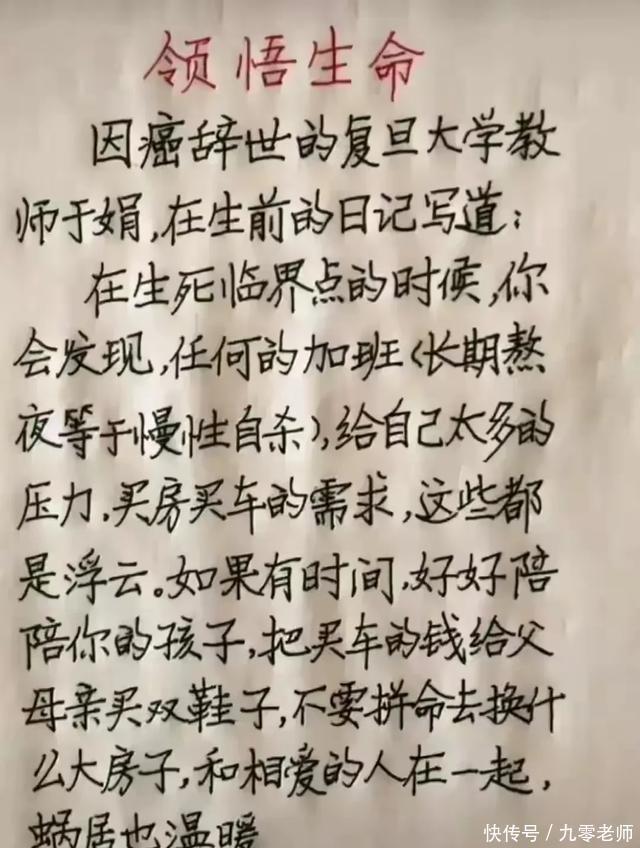 领悟生命
因癌辞世的复旦大学教
师于娟,在生前的日记写道:
在生死临界点的时候,你
会发现,任何的加班(长期熬
夜等于慢性自杀),给自己太多的
压力,买房买车的需求,这些都
是浮云。如果有时间,好好陪
陪你的孩子,把买车的钱给父
母亲买双鞋子,不要拼命去换什
么大房子,和相爱的人在一起,
蜗居也温暖
快传号/九零老师